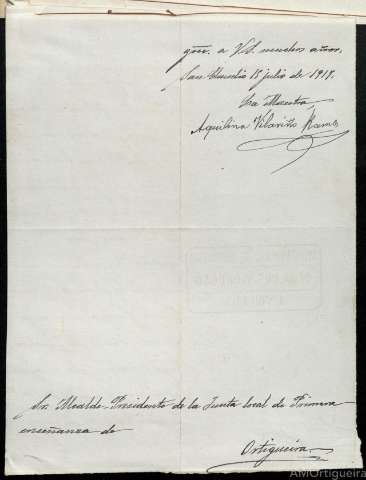 gue. a Vd. muchos años.
San Claudio 15 julio de 1918.
La Maestra
Aquilina Vilariño Ramos
Sr. Alcalde-Presidente de la Junta local de Primera
enseñanza de
Ortigueira
AMOrtigueira